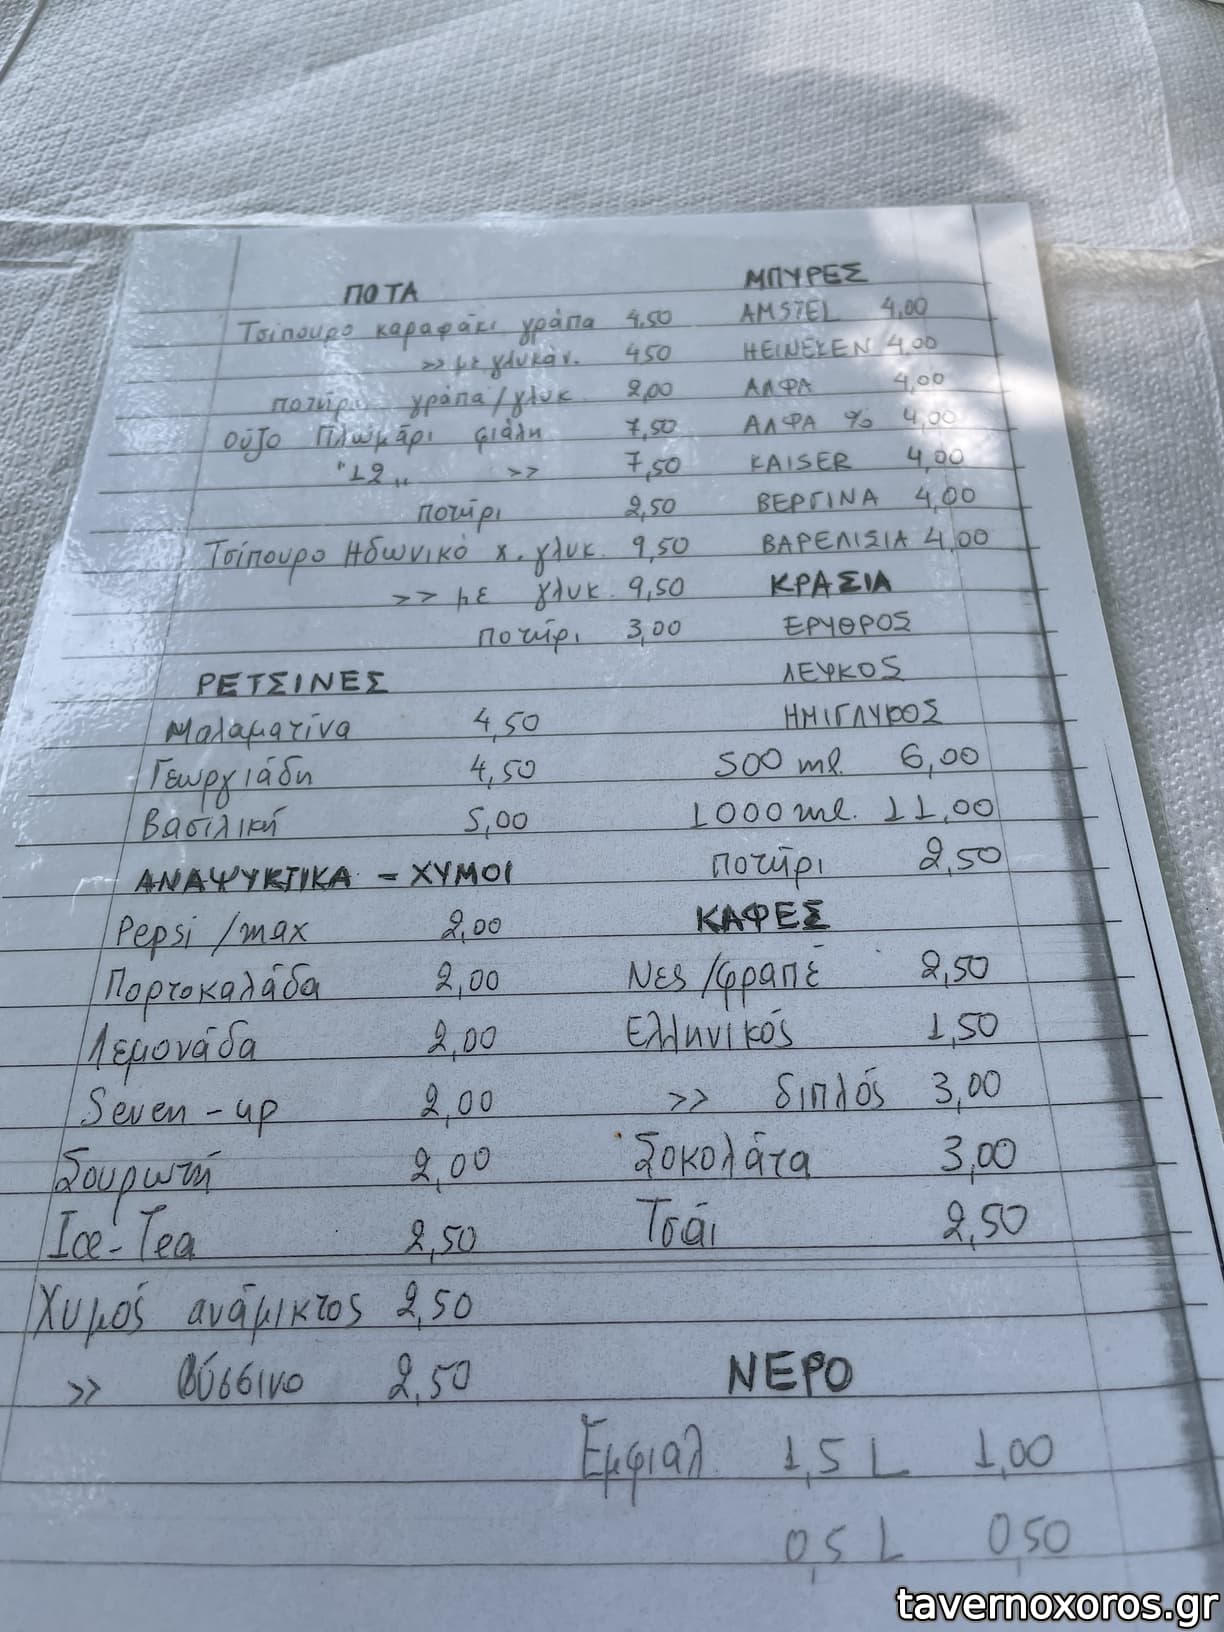 ΠΟΤΑ
Τσίπουρο καραφάκι γράπα 4,50
>> με γλυκάν. 4,50
ποτήρι γράπα/γλυκ 2,00
Ούζο Πλωμάρι φιάλη 7,50
"12" >> 7,50
ποτήρι 2,50
Τσίπουρο Ηδωνικό χ. γλυκ. 9,50
>> με γλυκ. 9,50
ποτήρι 3,00
ΡΕΤΣΙΝΕΣ
Μαλαματίνα 4,50
Γεωργιάδη 4,50
Βασιλική 5,00
ΑΝΑΨΥΚΤΙΚΑ - ΧΥΜΟΙ
Pepsi/max 2,00
Πορτοκαλάδα 2,00
Λεμονάδα 2,00
Seven-up 2,00
Σουρωτή 2,00
Ice-Tea 2,50
Χυμός ανάμικτος 2,50
>> βύσσινο 2,50
ΜΠΥΡΕΣ
AMSTEL 4,00
HEINEKEN 4,00
ΑΛΦΑ 4,00
ΑΛΦΑ % 4,00
KAISER 4,00
ΒΕΡΓΙΝΑ 4,00
ΒΑΡΕΛΙΣΙΑ 4,00
ΚΡΑΣΙΑ
ΕΡΥΘΡΟΣ
ΛΕΥΚΟΣ
ΗΜΙΓΛΥΚΟΣ
500 ml. 6,00
1000 ml. 11,00
ποτήρι 2,50
ΚΑΦΕΣ
Νες/φραπέ 2,50
Ελληνικός 1,50
>> διπλός 3,00
Σοκολάτα 3,00
Τσάι 2,50
ΝΕΡΟ
Εμφιαλ. 1,5 L 1,00
0,5 L 0,50
tavernoxoros.gr